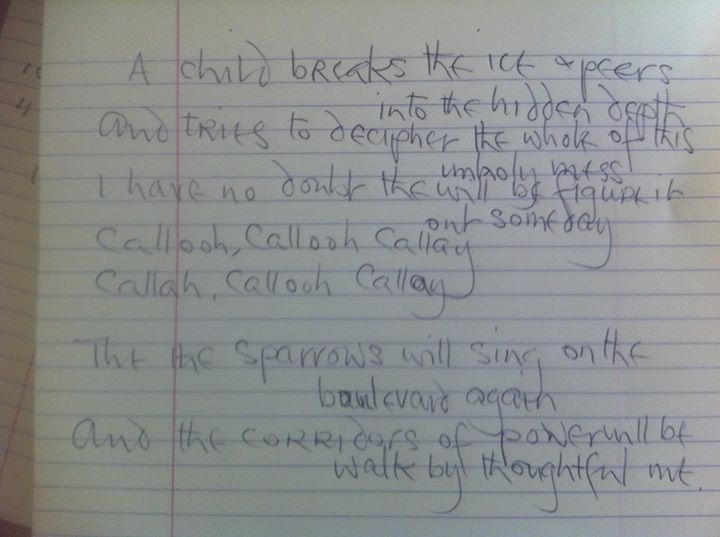 A child breaks the ice & peers
into the hidden depth
and tries to decipher the whole of this
unholy mess
I have no doubt the will be figure it
out someday
Callooh, Callooh Callay
Callah, Callooh Callay
The the sparrows will sing on the
boulevard again
And the corridors of power will be
walk by thoughtful me.